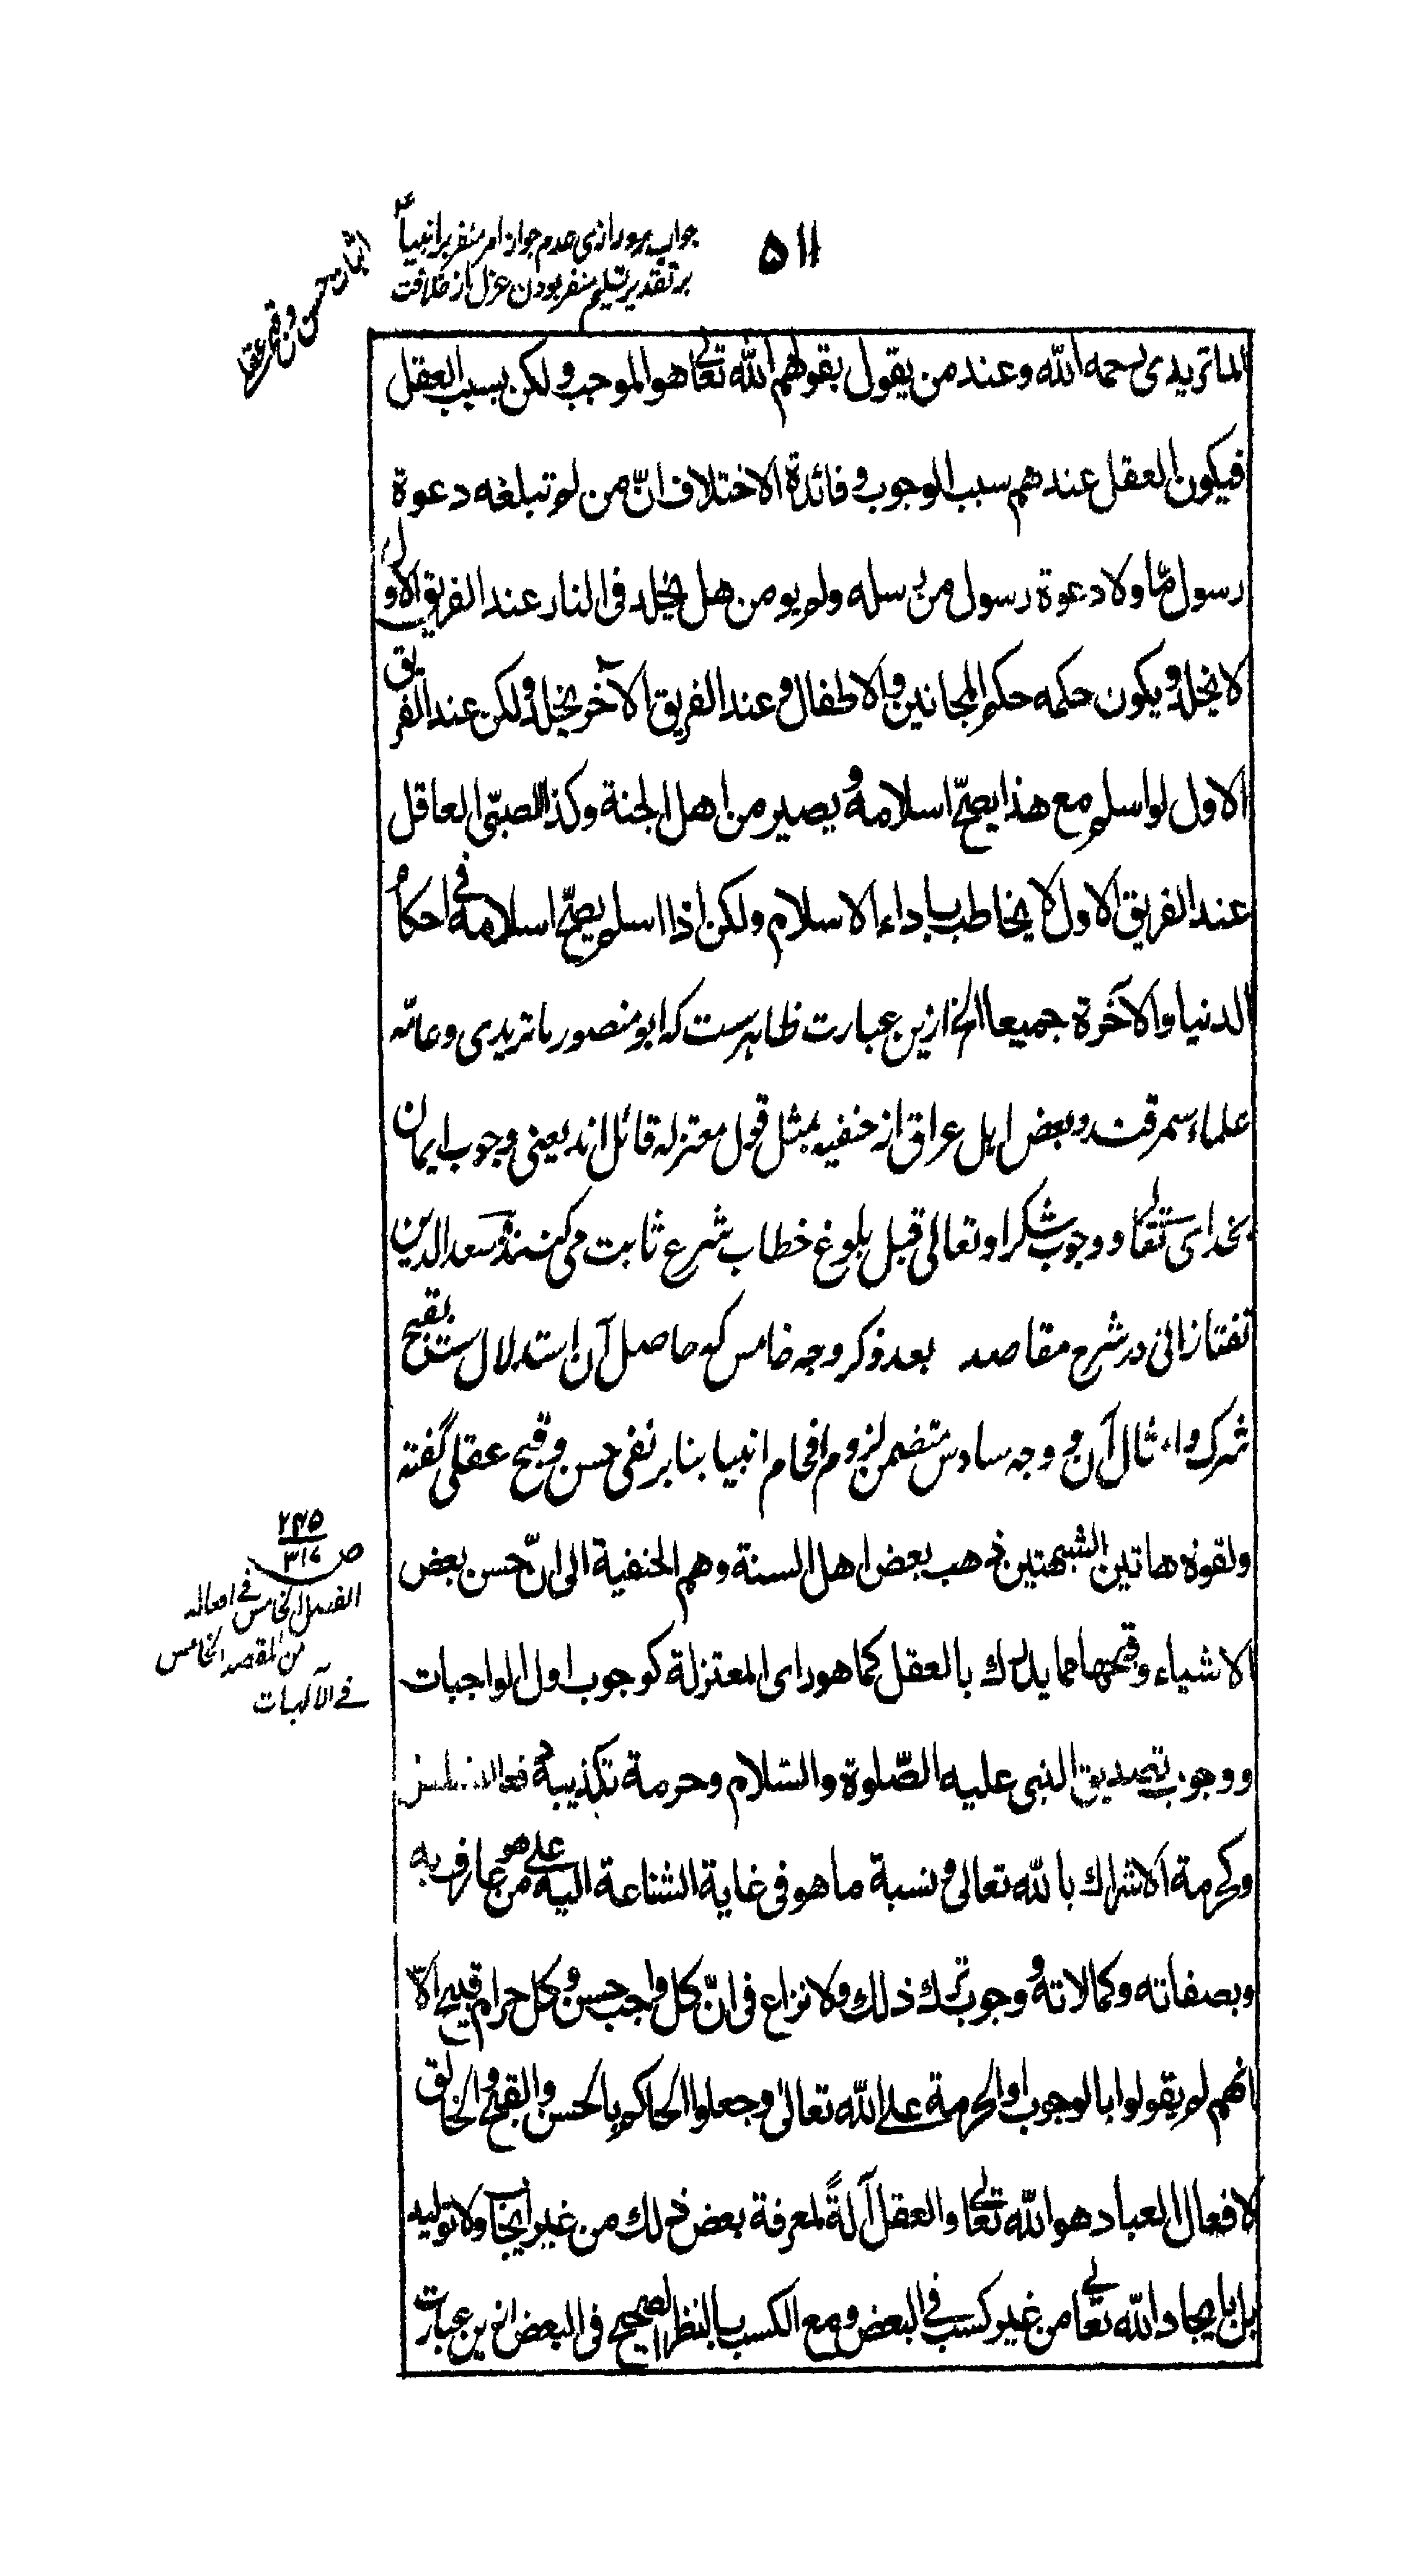 ۵۱۱
جواب مرور رازی عدم جواز امر منفر بر انبیا ع
بر تقدیر تسلیم منفر بودن عزل از خلافت
اثبات حسن و قبح عقلی
الماتریدی رحمه الله وعند من یقول بقولهم الله تعالی هو الموجب ولکن بسبب العقل
فیکون العقل عندهم سبب الوجوب و فائدة الاختلاف انّ من لم تبلغه دعوة
رسول مّا ولا دعوة رسول من رسله ولم یومن هل یخلد فی النار عند الفریق الاول
لا یخلد و یکون حکمه حکم المجانین والاطفال و عند الفریق الآخر یخلد ولکن عند الفریق
الاول لو اسلم مع هذا یصحّ اسلامه و یصیر من اهل الجنة وکذا الصبیّ العاقل
عند الفریق الاول لا یخاطب باداء الاسلام ولکن اذا اسلم یصحّ اسلامه فی احکام
الدنیا والآخرة جمیعا الخ ازین عبارت ظاهرست که ابو منصور ماتریدی و عامّه
علماء سمرقند و بعض اهل عراق از حنفیه بمثل قول معتزله قائل اند یعنی وجوب ایمان
بخدای تعالی و وجوب شکر او تعالی قبل بلوغ خطاب شرع ثابت می کنند و سعد الدین
تفتازانی در شرح مقاصد بعد ذکر وجه خامس که حاصل آن استدلال ست بقبح
شرک و امثال آن و وجه سادس متضمن لزوم افحام انبیا بنا بر نفی حسن و قبح عقلی گفته
ولقوة هاتین الشبهتین ذهب بعض اهل السنة وهم الحنفیة الی انّ حسن بعض
الاشیاء وقبحها مما یدرك بالعقل کما هو رای المعتزلة کوجوب اول الواجبات
ووجوب تصدیق النبی علیه الصّلوة والسّلام وحرمة تکذیبه دفعا للتسلسل
وکحرمة الاشراك بالله تعالی و نسبة ما هو فی غایة الشناعة الیه علی من هو عارف به
وبصفاته وکمالاته و وجوب ترك ذلك ولا نزاع فی انّ کل واجب حسن و کل حرام قبیح الّا
انهم لم یقولوا بالوجوب او الحرمة علی الله تعالی وجعلوا الحاکم بالحسن والقبح والخالق
لافعال العباد هو الله تعالی والعقل آلةً لمعرفة بعض ذلك من غیر ایجاد ولا تولید
بل بایجاد الله تعالی من غیر کسب فی البعض ومع الکسب بالنظر الصحیح فی البعض ازین عبارت
ص ۲۴۵
۳۱۷
الفصل الخامس فی افعاله
من المقصد الخامس
فی الآلهیات